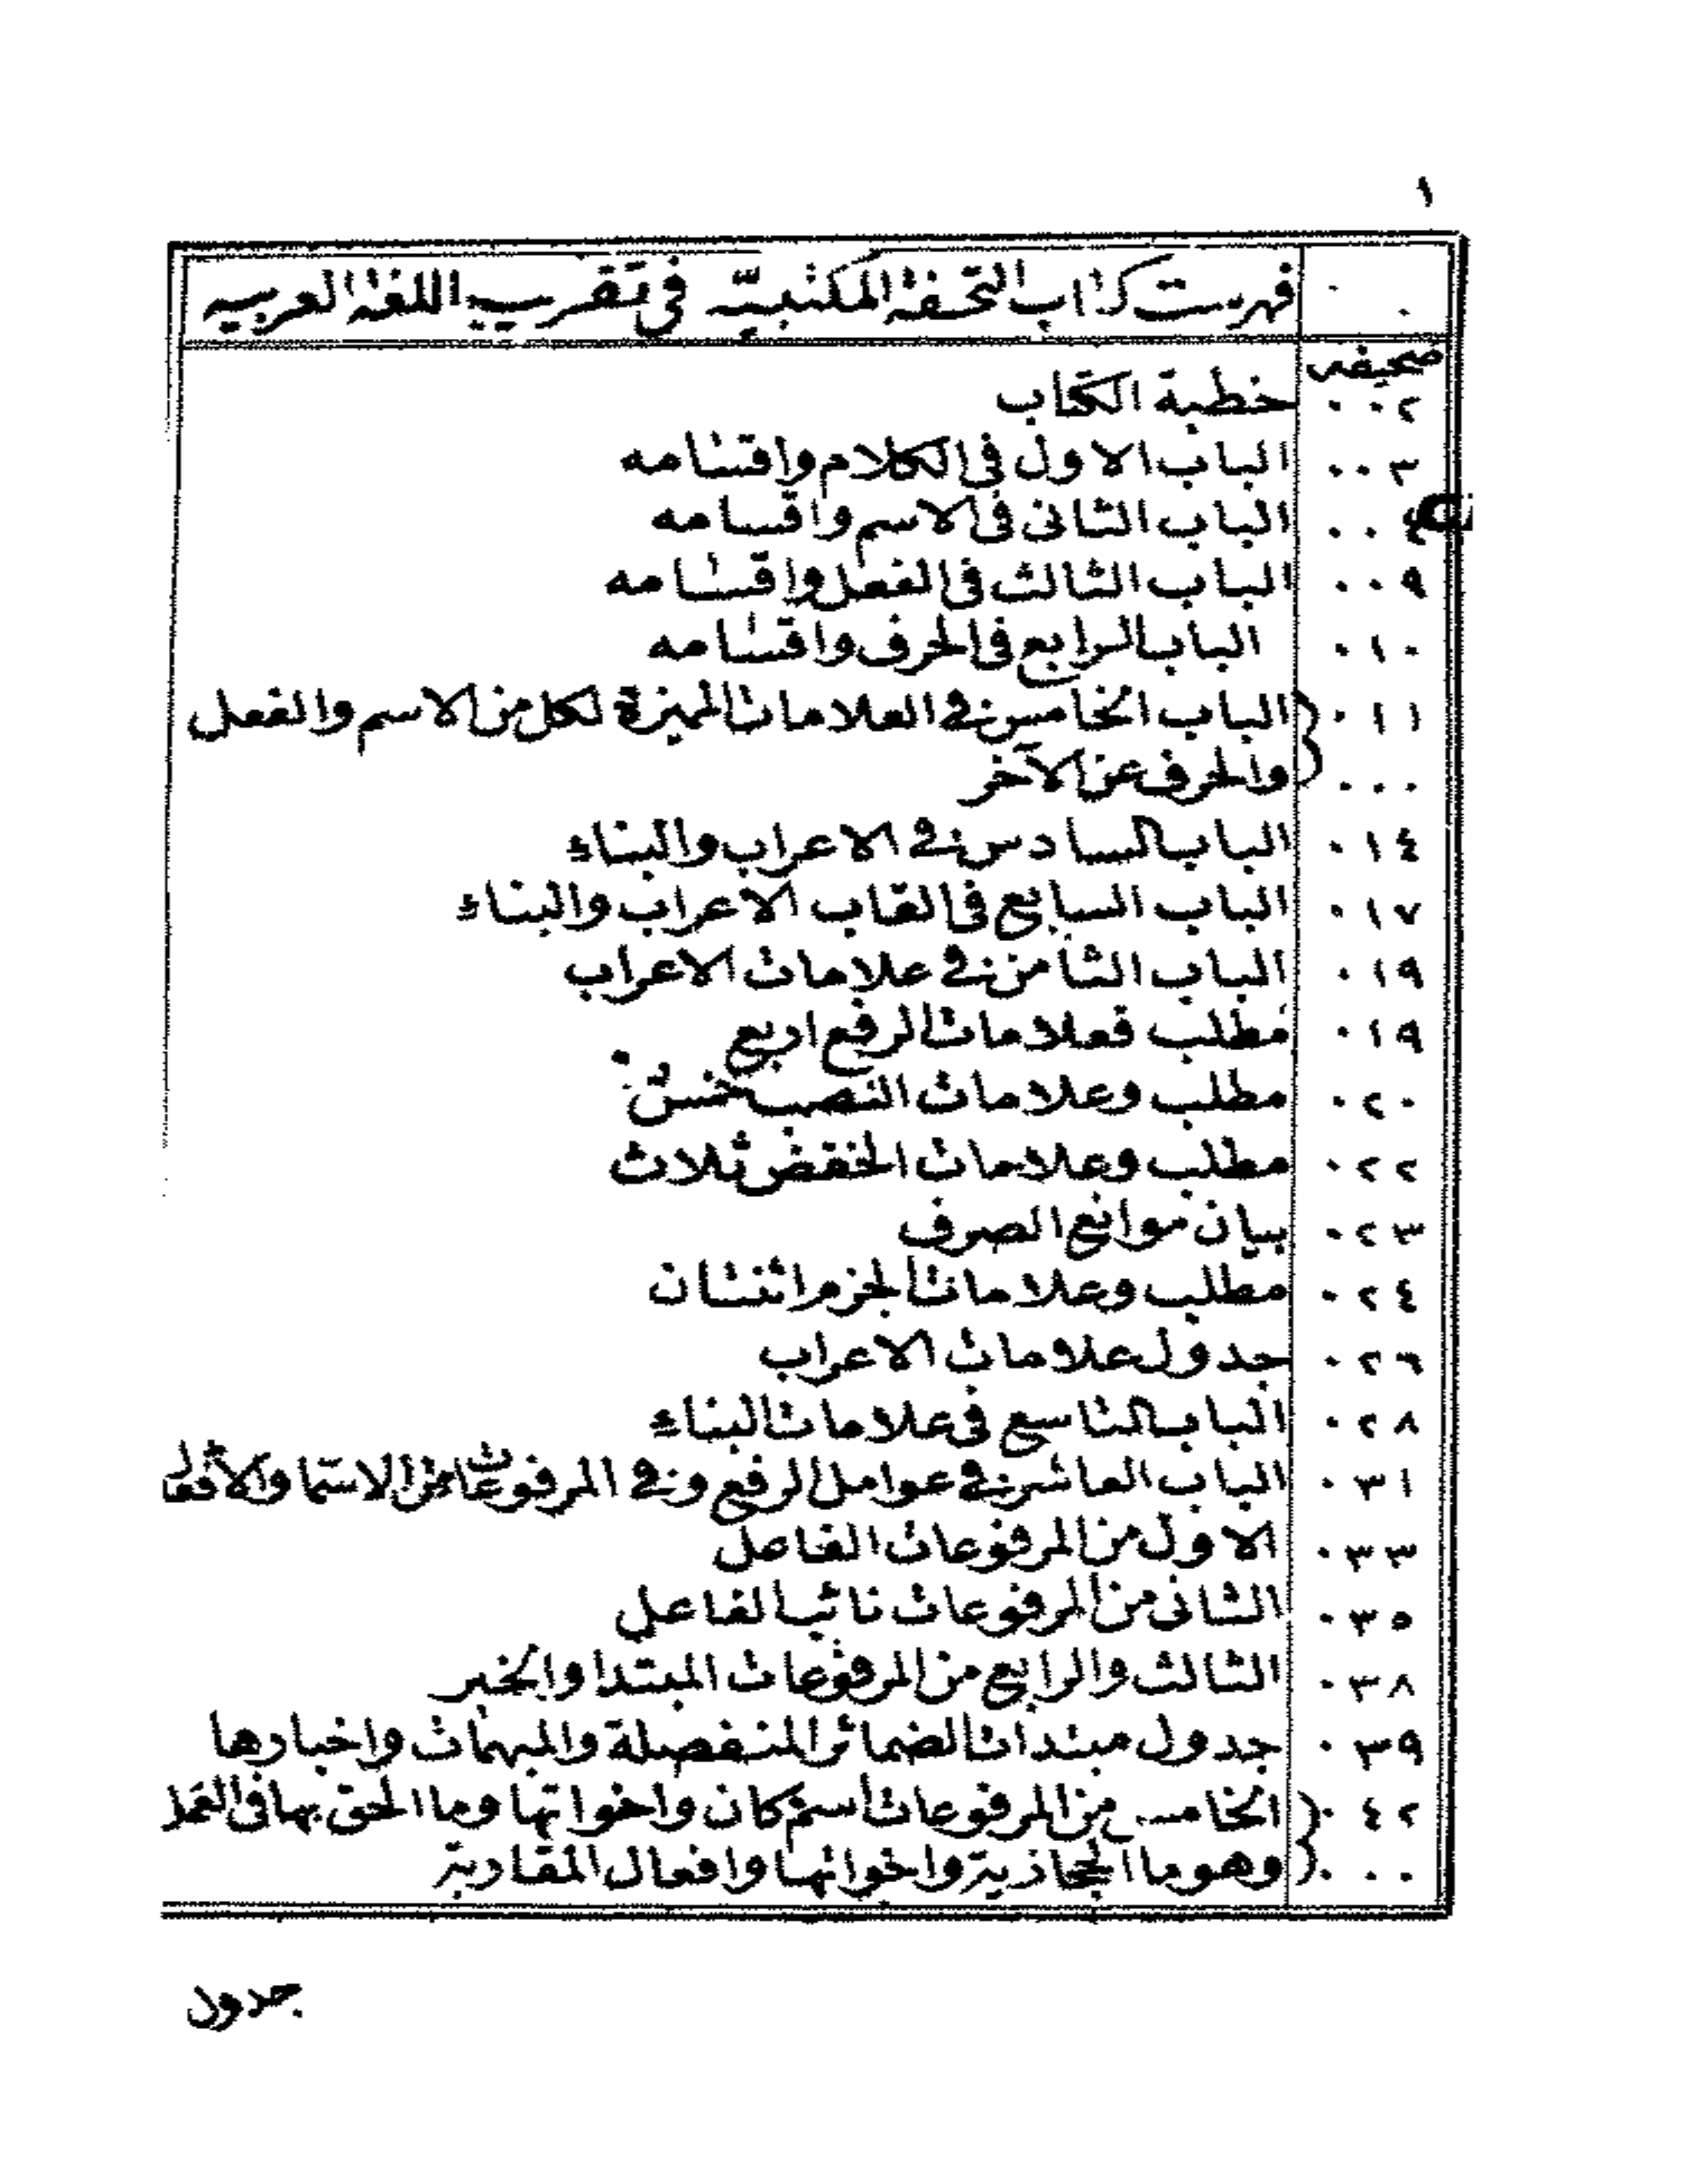 ١
فهرست كتاب التحفة المكتبية في تقريب اللغة العربيه
صحيفه
٠٠٢ خطبة الكتاب
٠٠٣ الباب الاول فى الكلام واقسامه
٠٠٤ الباب الثانى فى الاسم واقسامه
٠٠٩ الباب الثالث فى الفعل واقسامه
٠١٠ الباب الرابع فى الحرف واقسامه
٠١١ الباب الخامس فى العلامات المميزة لكل من الاسم والفعل
٠٠٠ والحرف عن الآخر
٠١٤ الباب السادس فى الاعراب والبناء
٠١٧ الباب السابع فى القاب الاعراب والبناء
٠١٩ الباب الثامن فى علامات الاعراب
٠١٩ مطلب فعلامات الرفع اربع
٠٢٠ مطلب وعلامات النصب خمس
٠٢٢ مطلب وعلامات الخفض ثلاث
٠٢٣ بيان موانع الصرف
٠٢٤ مطلب وعلامات الجزم اثنتان
٠٢٦ جدول علامات الاعراب
٠٢٨ الباب التاسع فى علامات البناء
٠٣١ الباب العاشر فى عوامل الرفع وفى المرفوعات من الاسما والافعا
٠٣٣ الاول من المرفوعات الفاعل
٠٣٥ الثانى من المرفوعات نائب الفاعل
٠٣٨ الثالث والرابع من المرفوعات المبتدا والخبر
٠٣٩ جدول مبتدات الضمائر المنفصلة والمبهمات واخبارها
٠٤٢ الخامس من المرفوعات اسم كان واخواتها وما الحق بها فى العمل
٠٠٠ وهو ما الحجازية واخواتها وافعال المقاربة
جدول